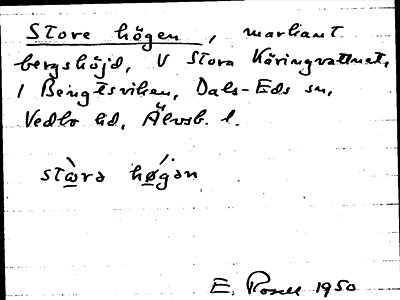 Store högen, markant
bergshöjd, V Stora Köringvattnet,
i Bengtsviken, Dals-Eds sn,
Vedbo hd, Älvsb. l.
stòrə hǿgən
E. Rosell 1950